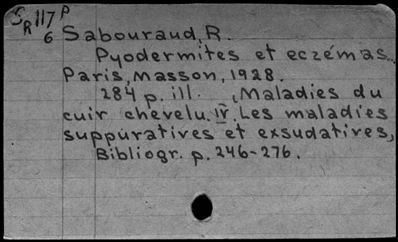 SR 117 P
6 Sabouraud, R.
Pyodermites et eczémas.
Paris, Masson, 1928.
284 p. ill. (Maladies du
cuir chevelu. IV. Les maladies
suppuratives et exsudatives)
Bibliogr. p. 246-276.